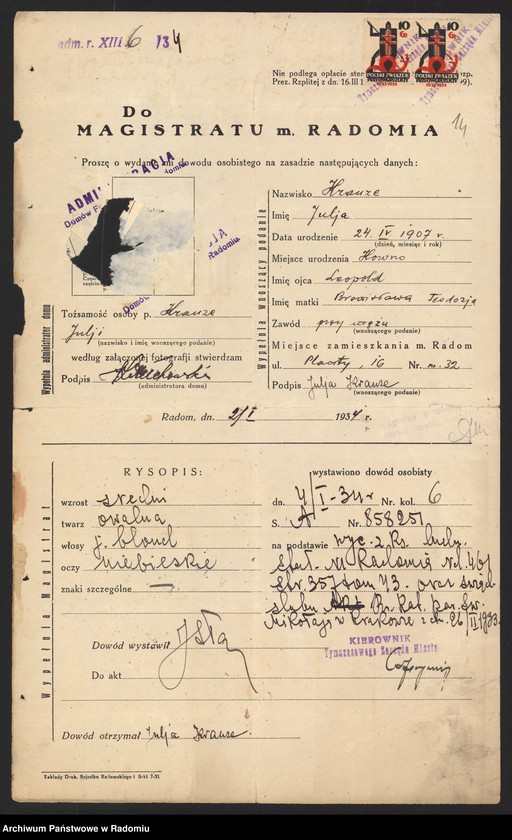 adm. r. XIII 6 /34
10 Gr 10 Gr
POLSKI ZWIĄZEK POLSKI ZWIĄZEK
Nie podlega opłacie
Prez. Rzplitej z dn. 16.III
14
Do
MAGISTRATU m. RADOMIA
Proszę o wydanie mi dowodu osobistego na zasadzie następujących danych:
Wypełnia wnoszący podanie
Nazwisko Krauze
Imię Julja
Data urodzenia 24. IV 1907 r.
(dzień, miesiąc i rok)
Miejsce urodzenia Kowno
Imię ojca Leopold
Imię matki Bronisława Teodozja
Zawód przy mężu
(wnoszącego podanie)
Miejsce zamieszkania m. Radom
ul. Planty, 16 Nr. m. 32
Podpis Julja Krauze
(wnoszącego podanie)
Wypełnia administrator domu
Tożsamość osoby p. Krauze
Julji
(nazwisko i imię wnoszącego podanie)
według załączonej fotografji stwierdzam
Podpis
(administratora domu)
Radom, dn. 2/I 1934 r.
Wypełnia Magistrat
RYSOPIS:
wzrost średni
twarz owalna
włosy j. blond
oczy niebieskie
znaki szczególne —
wystawiono dowód osobisty
dn. 4/I-34 r Nr. kol. 6
S. A Nr. 858251
na podstawie wyc. z ks. ludn.
stał. m Radomia nr. 46/
str. 357 tom 73. oraz świad.
ślubu Rz. Kat. par. Św.
Mikołaja w Krakowie z dn. 26/II 1933.
KIEROWNIK
Tymczasowego Zarządu Miasta
Dowód wystawił
Do akt
Dowód otrzymał Julja Krauze.
Zakłady Druk. Sejmiku Radomskiego
Archiwum Państwowe w Radomiu